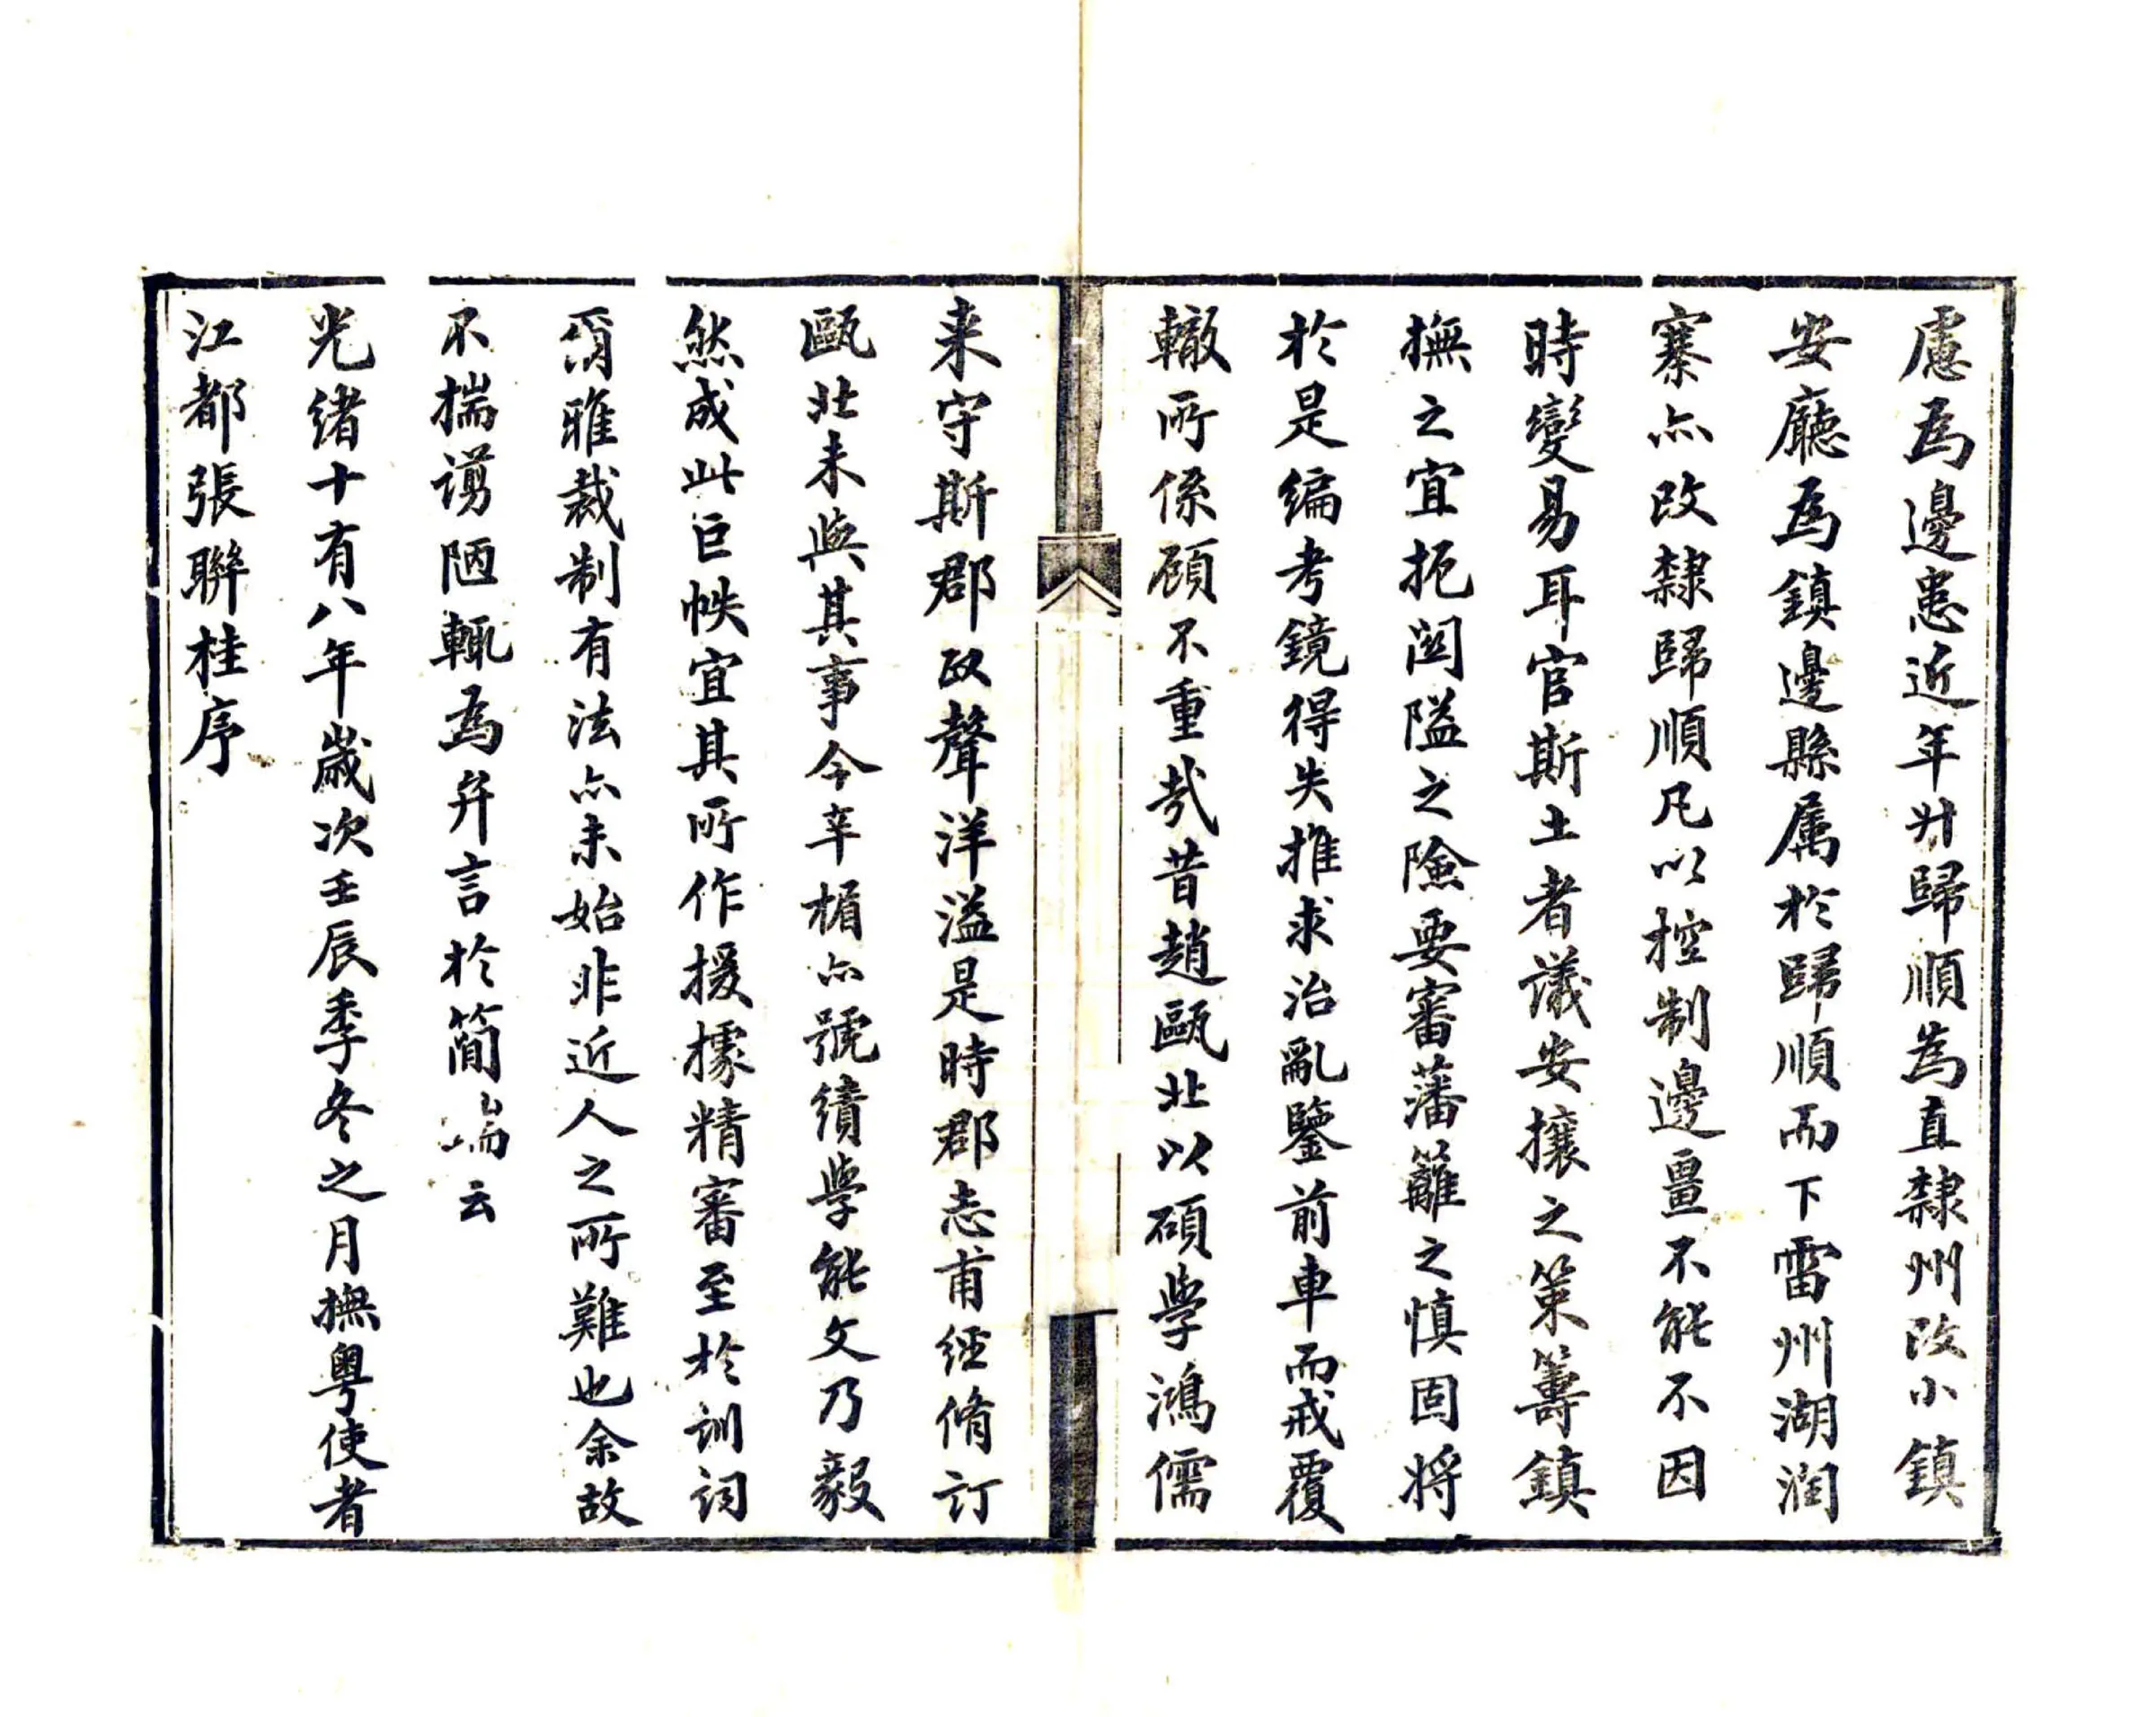 慮為邊患近年升歸順為直隸州改小鎮
安廳為鎮邊縣属於歸順而下雷州湖潤
寨亦改隸歸順凡以控制邊畺不能不因
時變易耳官斯土者議安攘之策籌鎮
撫之宜扼關隘之險要審藩籬之慎固將
於是編考鏡得失推求治亂鑒前車而戒覆
轍所係顧不重哉昔趙甌北以碩學鴻儒
来守斯郡政聲洋溢是時郡志甫經脩訂
甌北未與其事今辛楣亦號績學能文乃毅
然成此巨帙宜其所作援據精審至於訓詞
爾雅裁制有法亦未始非近人之所難也余故
不揣謭陋輒為弁言於簡端云
光緒十有八年歲次壬辰季冬之月撫粵使者
江都張聯桂序